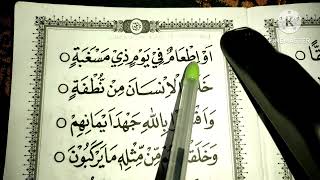 اَوْ اِطْعَامٌ فِيْ يَوْمٍ ذِيْ مَسْغَبَةٍ ○
الْاِنْسَانَ مِنْ نُّطْفَةٍ ○
بِاللهِ جَهْدَ اَيْمَانِهِمْ ○
مِّنْ مِّثْلِهٖ مَا يَرْكَبُوْنَ ○